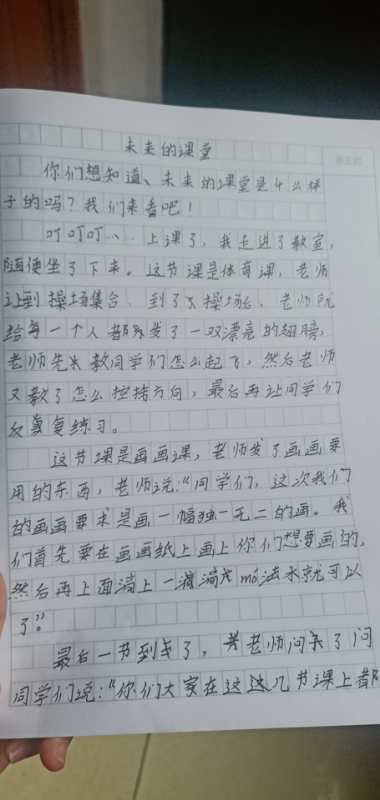 未来的课堂
你们想知道、未来的课堂是什么样
子的吗？我们来看吧！
叮叮叮、、、上课了，我走进了教室，
随便坐了下来。这节课是体育课，老师
让到操场集合、到了操场后、老师
给每一个人都发了一双漂亮的翅膀，
老师先教同学们怎么起飞，然后老师
又教了怎么控持方向，最后再让同学们
反复练习。
这节课是画画课，老师发了画画要
用的东西，老师说：“同学们，这次我们
的画画要求是画一幅独一无二的画。我
们首先要在画画纸上画上你们想要画的，
然后再上面滴上一滴滴 mó法水就可以
了”。
最后一节到了，老师问了问
同学们说：“你们大家在这几节课上都